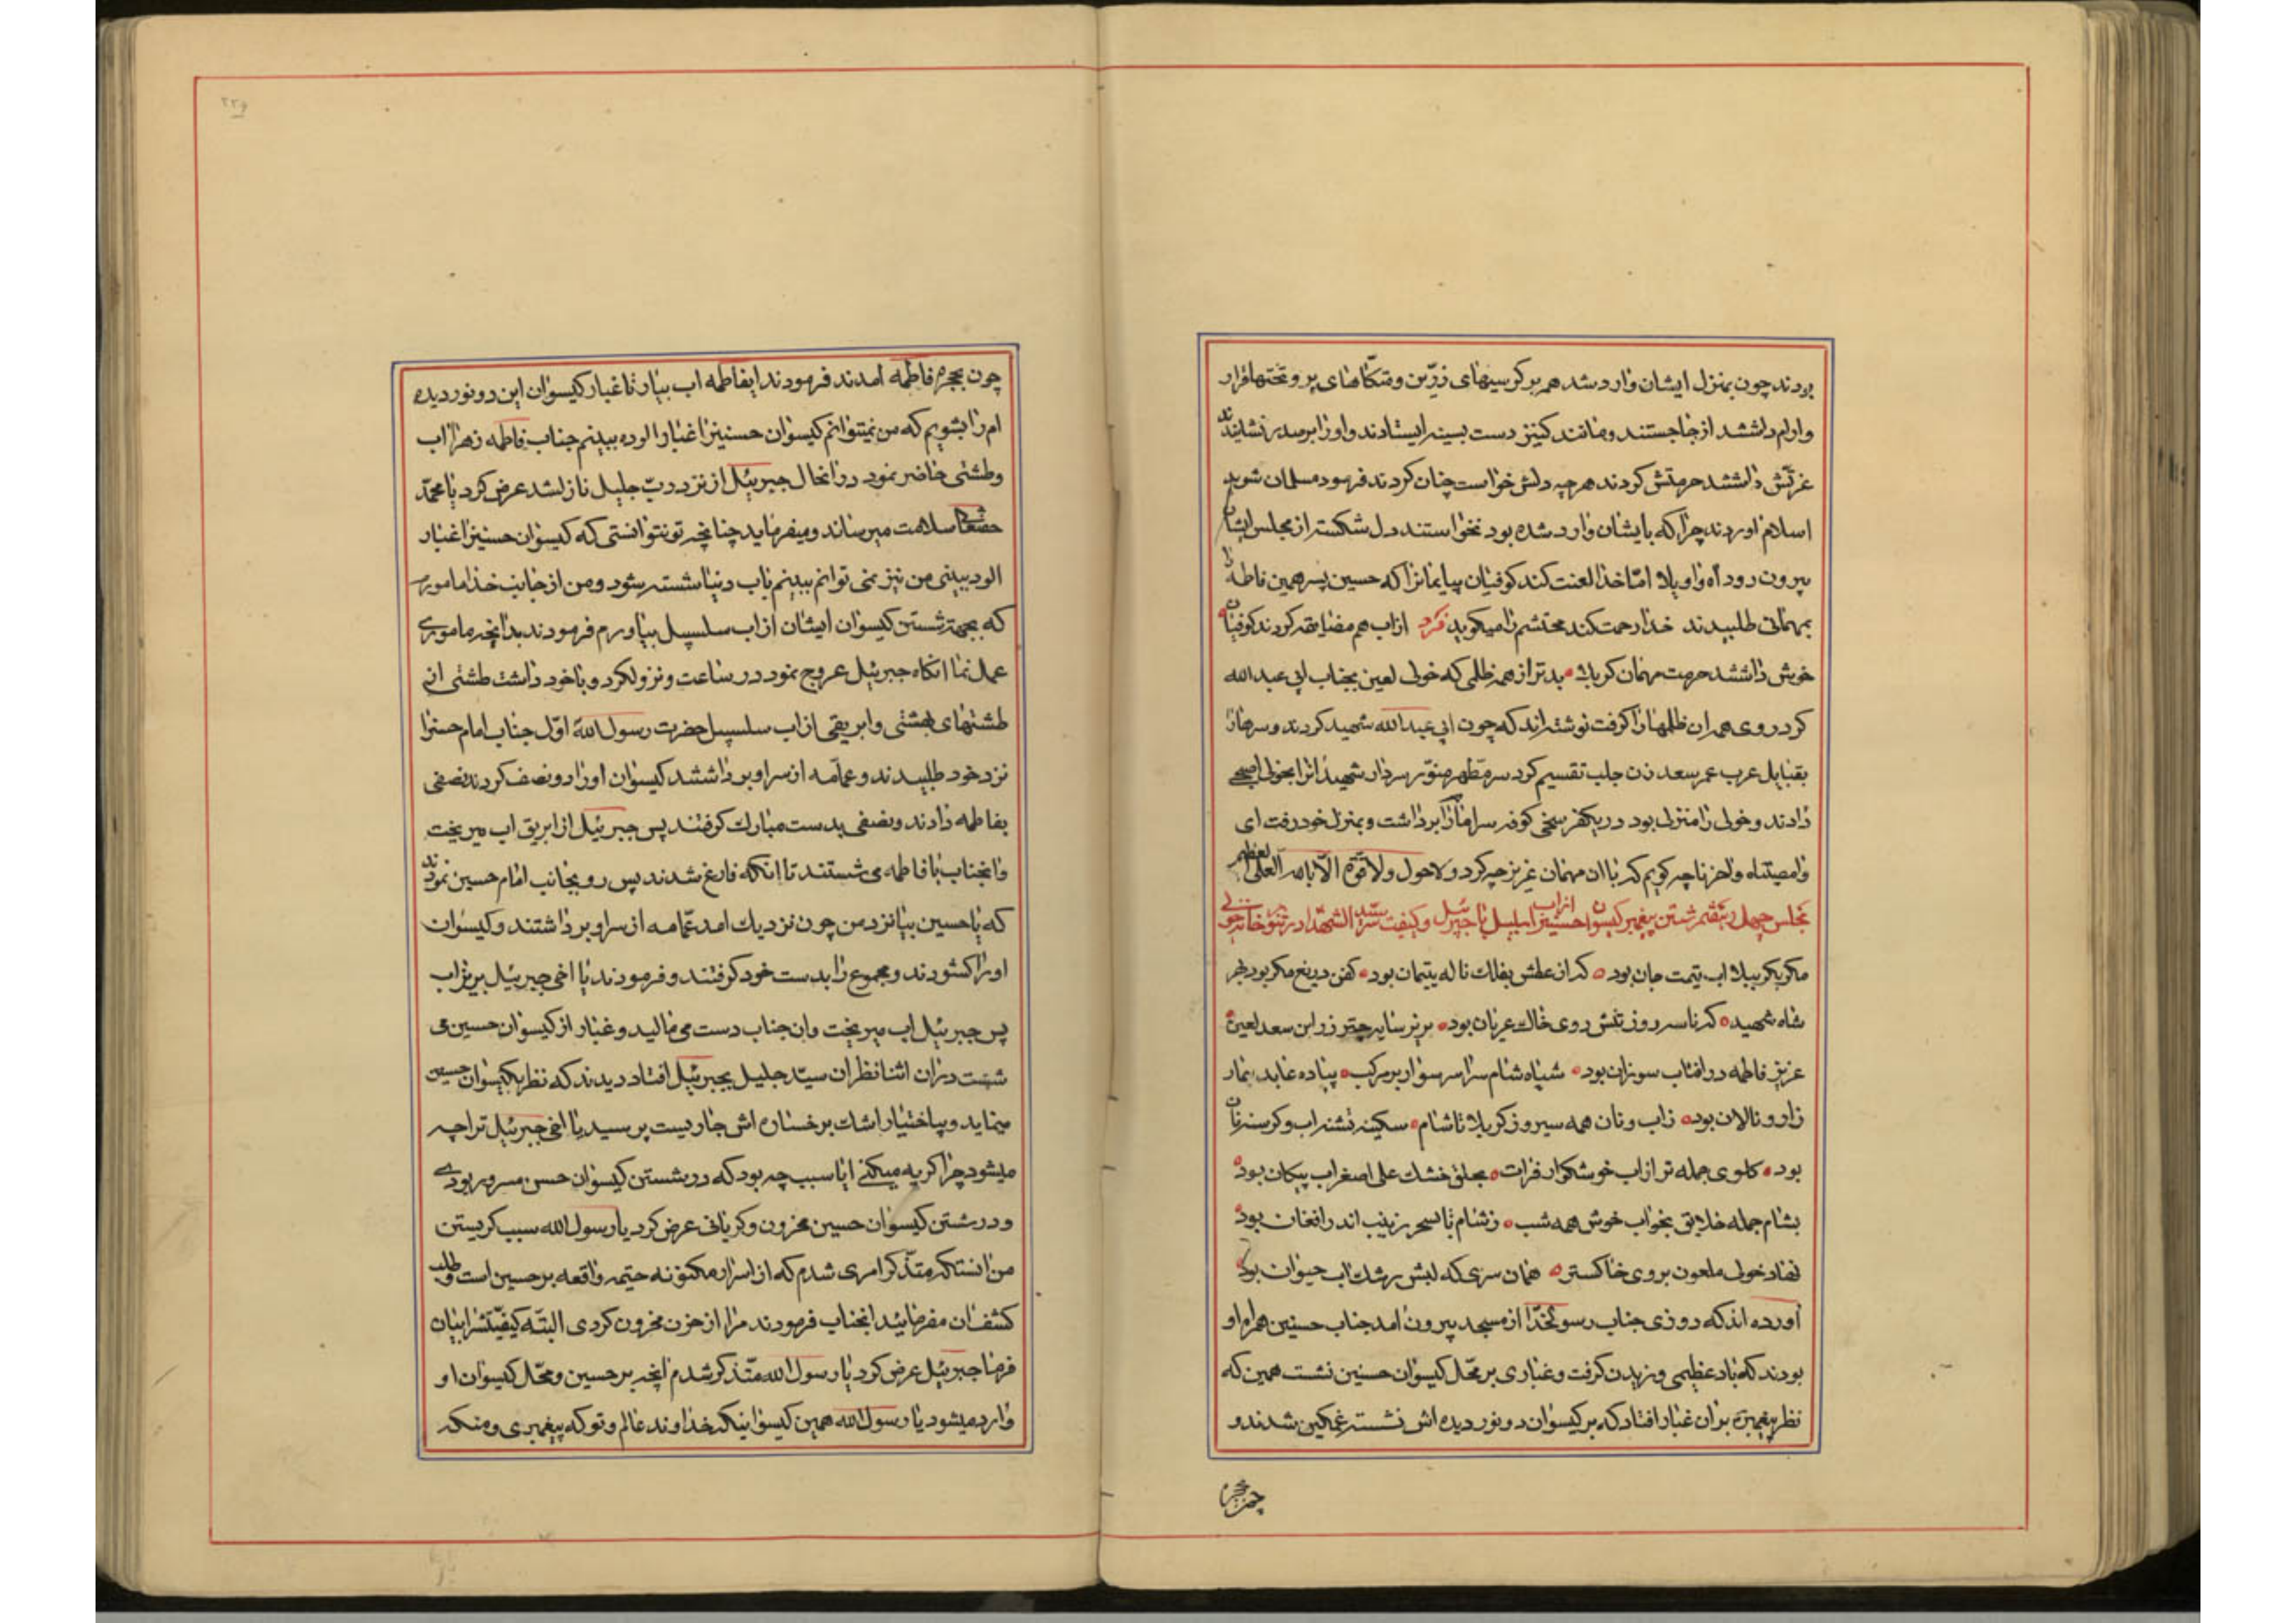 بودند چون بمنزل ایشان وارد شد همه بر کرسیهای زرّین و متکّاهای پر و تختها قرار
و ارام داشتند از جا جستند و مانند کنیز دست بسینه ایستادند و او را بر صدر نشانیدند
عزّتش داشتند حرمتش کردند هر چه دلش خواست چنان کردند فرمود مسلمان شوید
اسلام اوردند چرا که بایشان وارد شده بود نخواستند دل شکسته از مجلس ایشان
بیرون رود اه واویلا امّا خدا لعنت کند کوفیان بیایمانرا که حسین پسر همین فاطمه را
بمهمانی طلبیدند خدا رحمت کند محتشم را میکوید فرد از اب هم مضایقه کردند کوفیان
خوش داشتند حرمت مهمان کربلا بدتر از همه ظلمی که خولی لعین بجناب ابی عبدالله
کرد روی همه ان ظلمها را کرفت نوشته اند که چون ابی عبدالله شهید کردند و سرها را
بقبایل عرب عمر سعد زن جلب تقسیم کرد سر مطهر منوّر سردار شهیدانرا بخولی اصبحی
دادند و خولی را منزلی بود در یکفرسخی کوفه سر امام را برداشت و بمنزل خود رفت ای
وا مصیبتاه وا حزناه چه کویم که با ان مهمان عزیز چه کرد و لا حول و لا قوّة الّا بالله العلی العظیم
مجلس چهل و هفتم شستن پیغمبر کیسوان حسنین را از اب سلسبیل با جبرئیل و کیفیت سر سید الشهدا در تنور خانه خولی
مکر بکربلا اب قیمت جان بود که از عطش بفلک ناله یتیمان بود کفن دریغ مکر بود بر
شاه شهید که تا سه روز تنش روی خاک عریان بود بزیر سایه چتر زر ابن سعد لعین
عزیز فاطمه در افتاب سوزان بود سپاه شام سراسر سوار بر مرکب پیاده عابد بیمار
زار و نالان بود ز اب و نان همه سیر و ز کربلا تا شام سکینه تشنه اب و کرسنه نان
بود کلوی جمله تر از اب خوشکوار فرات بحلق خشک علی اصغر اب پیکان بود
بشام جمله خلایق بخواب خوش همه شب ز شام تا بسحر زینب اندر افغان بود
نهاد خولی ملعون بروی خاکستر همان سری که لبش رشک اب حیوان بود
آورده اند که روزی جناب رسولخدّا از مسجد بیرون امد جناب حسنین همراه او
بودند که باد عظیمی وزیدن کرفت و غباری بر محّل کیسوان حسنین نشست همین که
نظر پیغمبر بر ان غبار افتاد که بر کیسوان دو نور دیده اش نشسته غمکین شدند و
چون بحجره
چون بحجره فاطمه امدند فرمودند ایفاطمه اب بیار تا غبار کیسوان این دو نور دیده
ام را بشویم که من نمیتوانم کیسوان حسنین را غبار الوده ببینم جناب فاطمه زهرا اب
و طشتی حاضر نمود در انحال جبرئیل از نزد ربّ جلیل نازل شد عرض کرد یا محمّد
حقتعالی سلامت میرساند و میفرماید چنانچه تو نتوانستی که کیسوان حسنین را غبار
الود ببینی من نیز نمی توانم ببینم باب دنیا شسته شود و من از جانب خدا مامورم
که بجهة شستن کیسوان ایشان از اب سلسبیل بیاورم فرمودند بدانچه ماموری
عمل نما انکاه جبرئیل عروج نمود در ساعت و نزول کرد و با خود داشت طشتی از
طشتهای بهشتی و ابریقی از اب سلسبیل حضرت رسول الله اوّل جناب امام حسنرا
نزد خود طلبیدند و عمّامه از سر او برداشتند کیسوان او را دو نصف کردند نصفی
بفاطمه دادند و نصفی بدست مبارک کرفتند پس جبرئیل از ابریق اب میریخت
و انجناب با فاطمه می شستند تا انکه فارغ شدند پس رو بجانب امام حسین نمودند
که یا حسین بیا نزد من چون نزدیک امد عمّامه از سر او برداشتند و کیسوان
او را کشودند و مجموع را بدست خود کرفتند و فرمودند یا اخی جبرئیل بریز اب
پس جبرئیل اب میریخت و ان جناب دست می مالید و غبار از کیسوان حسین می
شست در ان اثنا نظر ان سیّد جلیل بجبرئیل افتاد دیدند که نظر بکیسوان حسین
مینماید و بیاختیار اشک بر رخساره اش جاریست پرسید یا اخی جبرئیل ترا چه
میشود چرا کریه میکنی ایا سبب چه بود که در شستن کیسوان حسن مسرور بودی
و در شستن کیسوان حسین محزون و کریانی عرض کرد یا رسول الله سبب کریستن
من انستکه متذّکر امری شدم که از اسرار مکنونه حتمیه واقعه بر حسین است و طلب
کشف ان مفرمائید انجناب فرمودند مرا از حزن محزون کردی البتّه کیفیّتشرا بیان
فرما جبرئیل عرض کرد یا رسول الله متّذکر شدم انچه بر حسین و محّل کیسوان او
وارد میشود یا رسول الله همین کیسوانیکه خداوند عالم و تو که پیغمبری و منکه